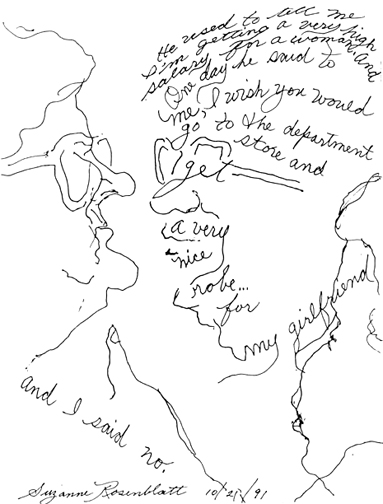 He used to tell me
I'm getting a very high
salary for a woman, and
One day he said to
me, I wish you would
go to the department
store and
get
a very
nice
robe...
for
my girlfriend
and I said no.
Suzanne Rosenblatt 10/25/91